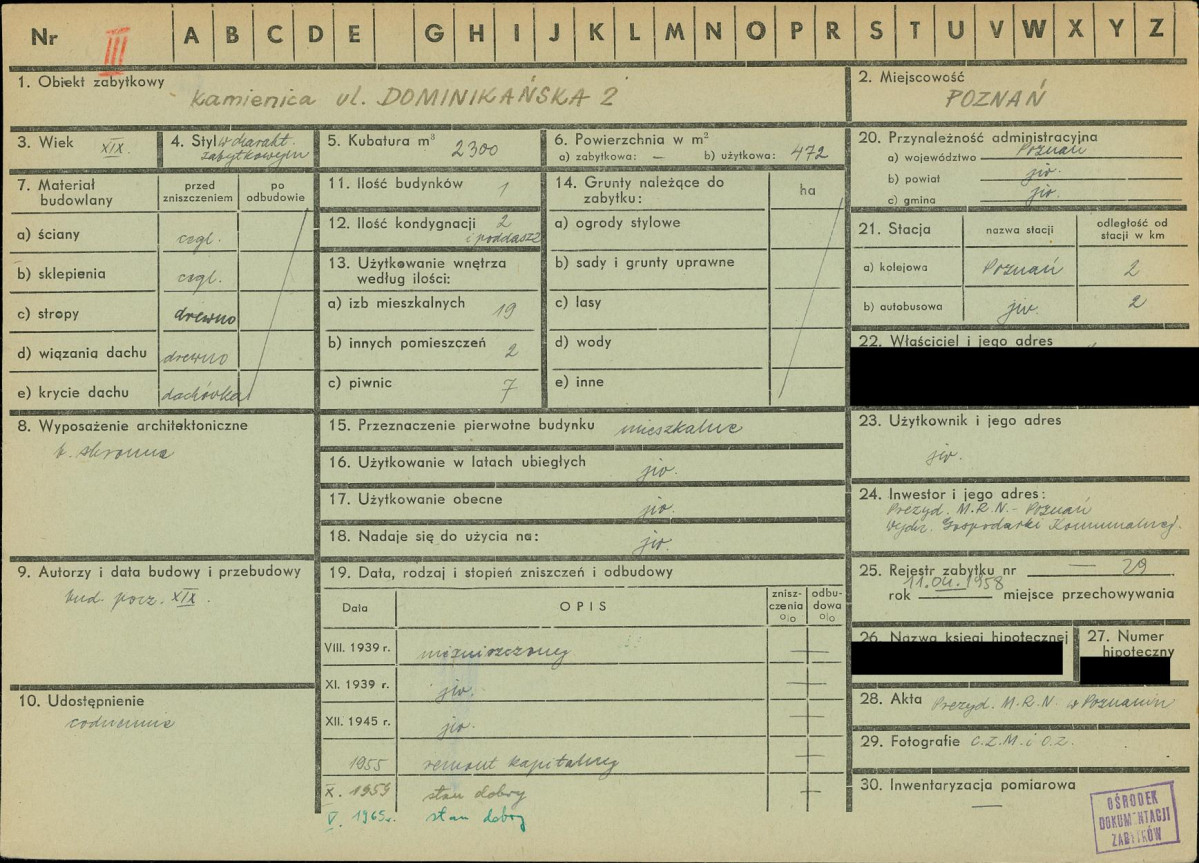 Nr III A B C D E G H I J K L M N O P R S T U V W X Y Z
1. Obiekt zabytkowy
Kamienica ul. DOMINIKAŃSKA 2
2. Miejscowość
POZNAŃ
3. Wiek XIX.
4. Styl w charakt. zabytkowym
5. Kubatura m³ 2300
6. Powierzchnia w m²
a) zabytkowa: — b) użytkowa: 472
7. Materiał budowlany
przed zniszczeniem
po odbudowie
a) ściany cegl.
b) sklepienia cegl.
c) stropy drewno
d) wiązania dachu drewno
e) krycie dachu dachówka
8. Wyposażenie architektoniczne
b. skromne
9. Autorzy i data budowy i przebudowy
bud. pocz. XIX.
10. Udostępnienie
codziennie
11. Ilość budynków 1
12. Ilość kondygnacji 2 i poddasze
13. Użytkowanie wnętrza według ilości:
a) izb mieszkalnych 19
b) innych pomieszczeń 2
c) piwnic 7
14. Grunty należące do zabytku:
ha
a) ogrody stylowe
b) sady i grunty uprawne
c) lasy
d) wody
e) inne
15. Przeznaczenie pierwotne budynku mieszkalne
16. Użytkowanie w latach ubiegłych jw.
17. Użytkowanie obecne jw.
18. Nadaje się do użycia na: jw.
19. Data, rodzaj i stopień zniszczeń i odbudowy
Data
OPIS
znisz-czenia o/o
odbu-dowa o/o
VIII. 1939 r. niezniszczony —
XI. 1939 r. jw. —
XII. 1945 r. jw. —
1955 remont kapitalny —
X. 1959 stan dobry —
V. 1965r. stan dobry
20. Przynależność administracyjna
a) województwo Poznań
b) powiat jw.
c) gmina jw.
21. Stacja
nazwa stacji
odległość od stacji w km
a) kolejowa Poznań 2
b) autobusowa jw. 2
22. Właściciel i jego adres
23. Użytkownik i jego adres
jw.
24. Inwestor i jego adres:
Prezyd. M.R.N. - Poznań
Wydz. Gospodarki Komunalnej.
25. Rejestr zabytku nr — 29
rok 11.04.1958 miejsce przechowywania
26. Nazwa księgi hipotecznej
27. Numer hipoteczny
28. Akta Prezyd. M.R.N. w Poznaniu
29. Fotografie C.Z.M. i O.Z.
30. Inwentaryzacja pomiarowa
—
OŚRODEK
DOKUMENTACJI
ZABYTKÓW